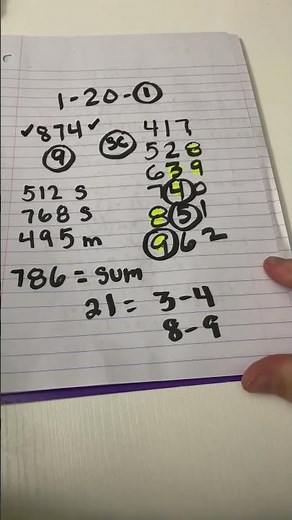 1-20-1
✓874✓
9
SC
417
528
639
740
851
962
512 S
768 S
495 m
786 = sum
21 = 3-4
8-9